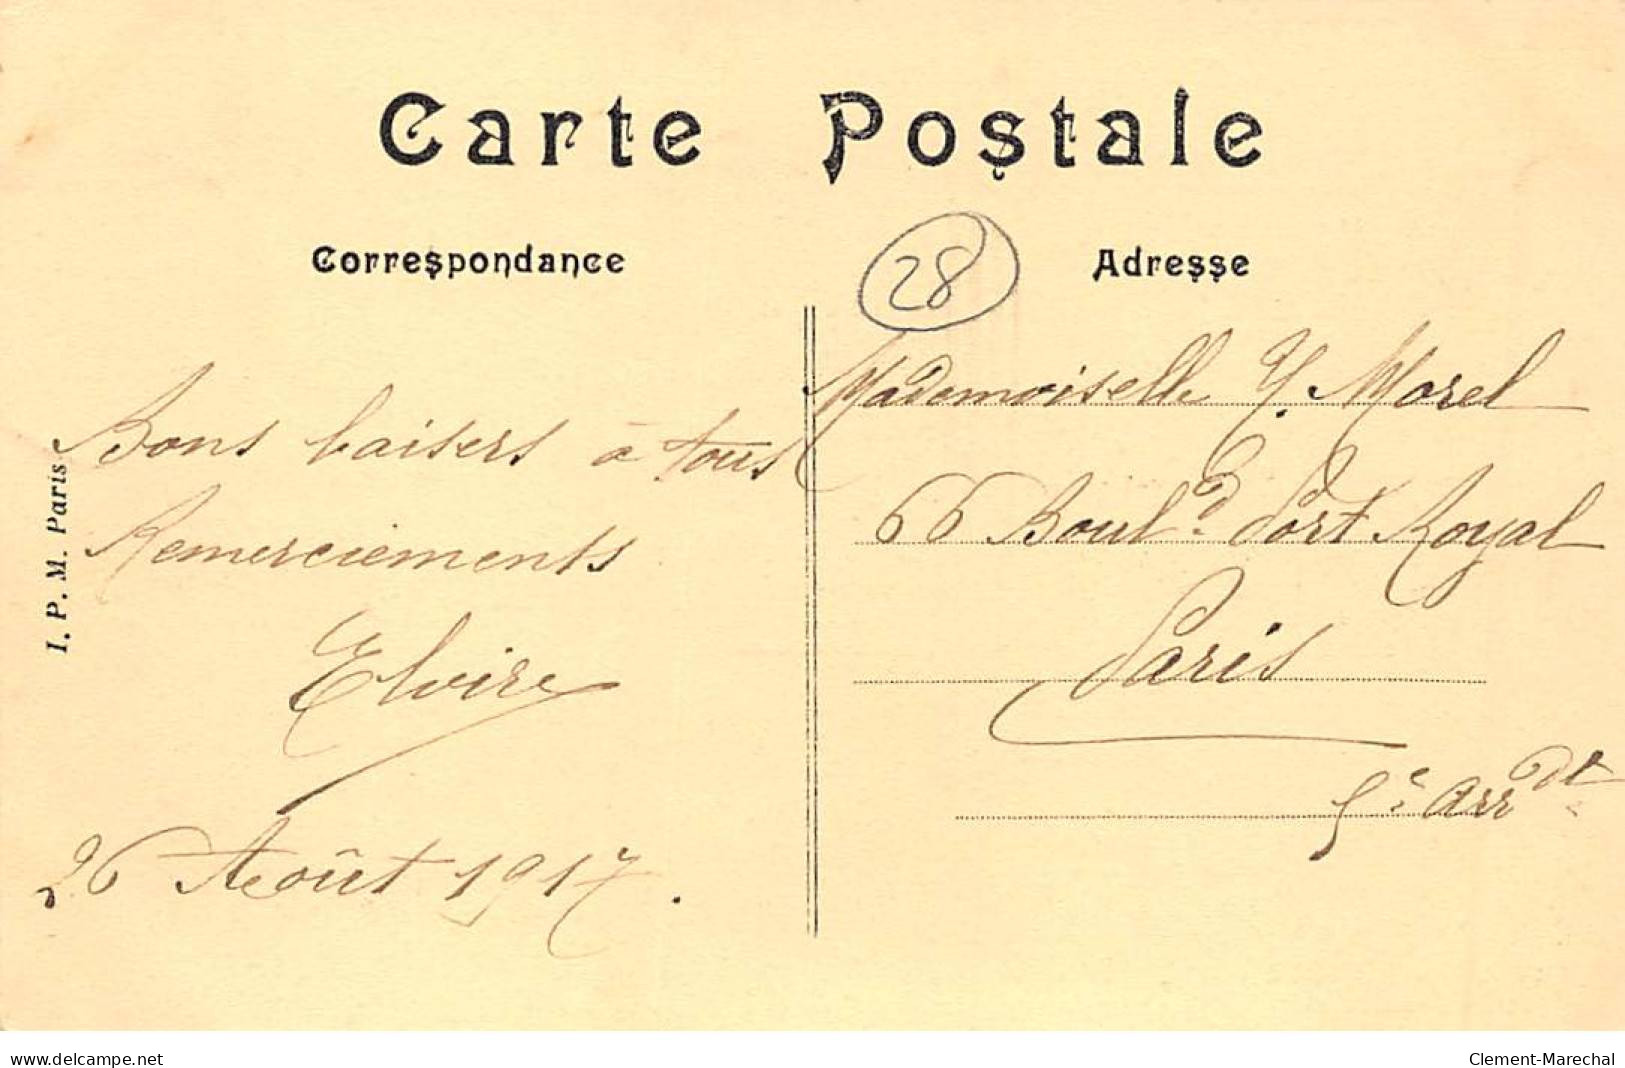 Carte Postale
Correspondance
28
Adresse
Bons baisers à tous
Remerciements
Elvire
26 Août 1917.
I. P. M. Paris
Mademoiselle Y. Morel
66 Boul.d Port Royal
Paris
5e Arrdt
www.delcampe.net
Clement-Marechal